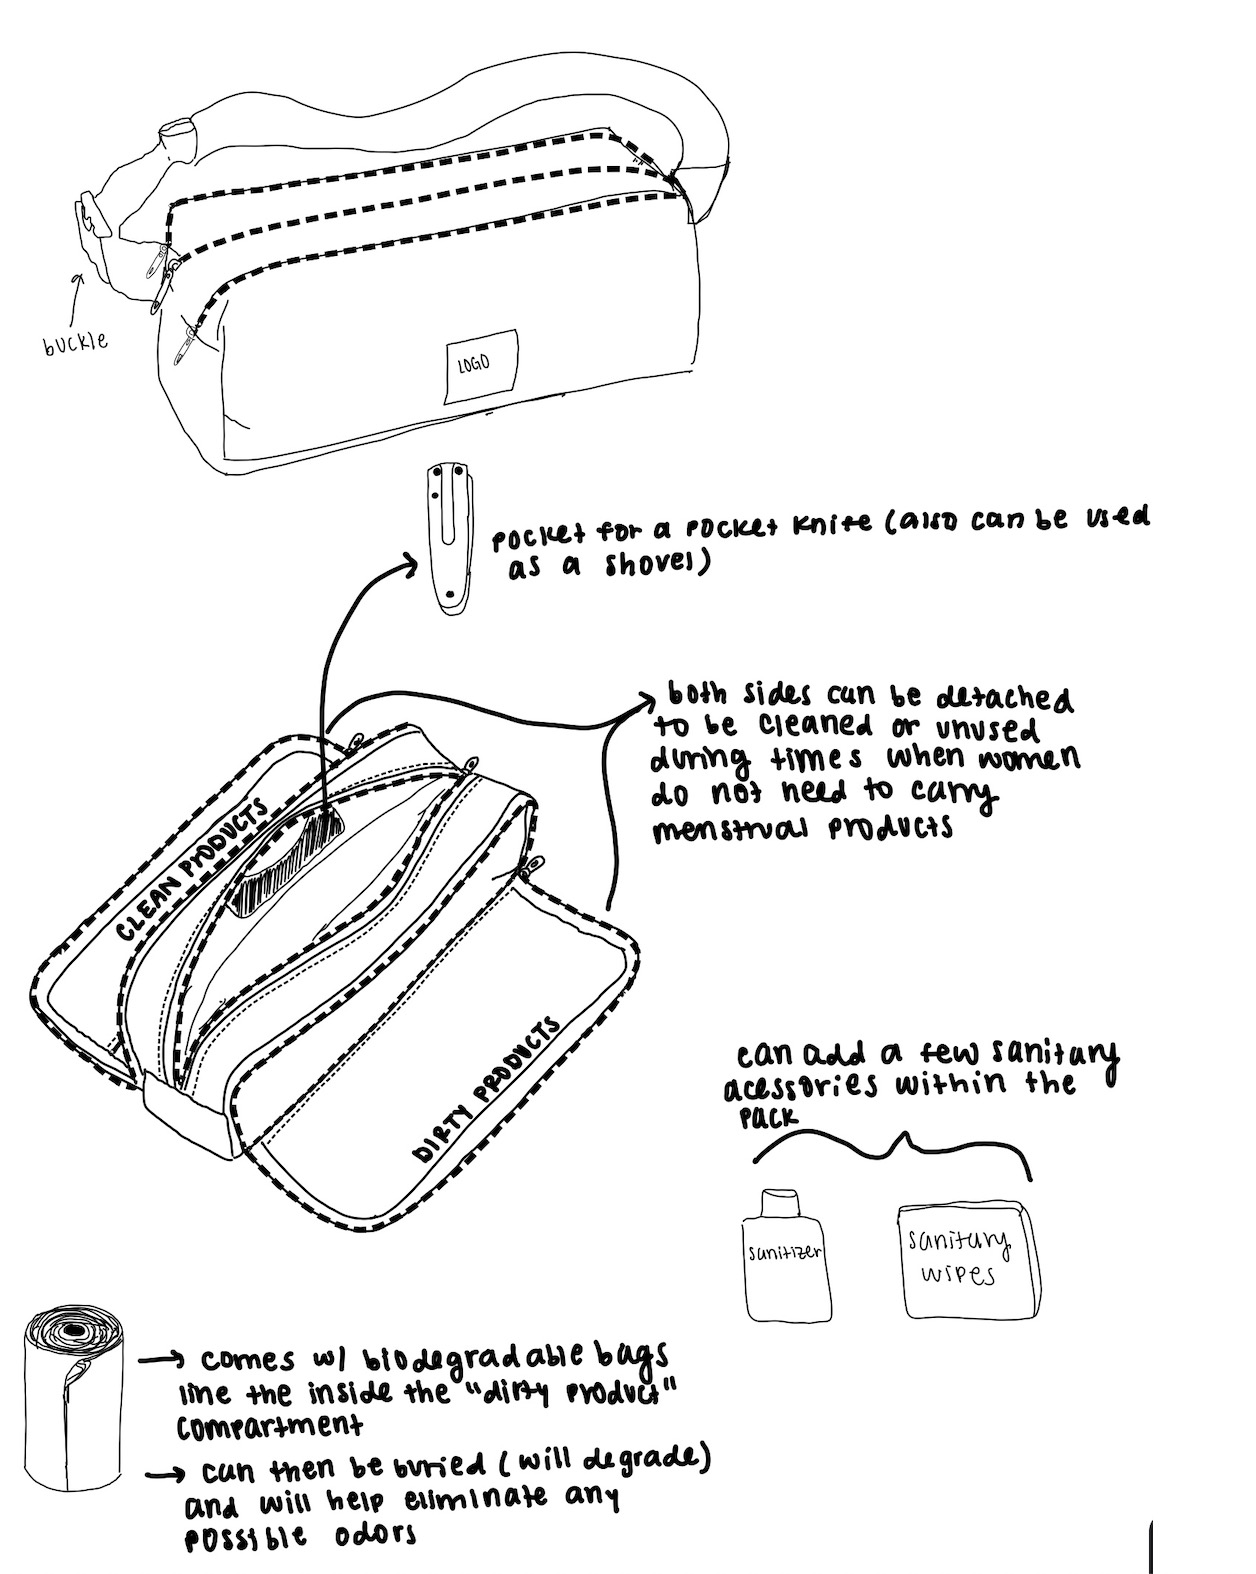 buckle
LOGO
pocket for a pocket knife (also can be used
as a shovel)
both sides can be detached
to be cleaned or unused
during times when women
do not need to carry
menstrual products
CLEAN PRODUCTS
DIRTY PRODUCTS
can add a few sanitary
acessories within the
pack
sanitizer
sanitary
wipes
→ comes w/ biodegradable bags
line the inside the "dirty product"
compartment
→ can then be buried (will degrade)
and will help eliminate any
possible odors